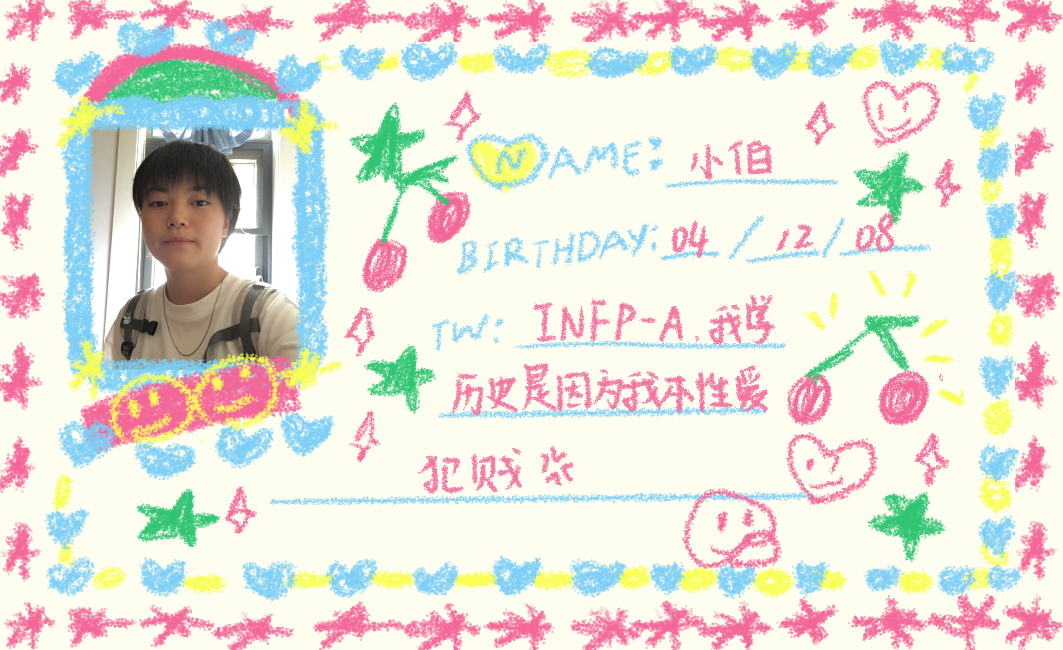 NAME: 小伯
BIRTHDAY: 04/12/08
TW: INFP-A.我学
历史是因为我本性爱
犯贱